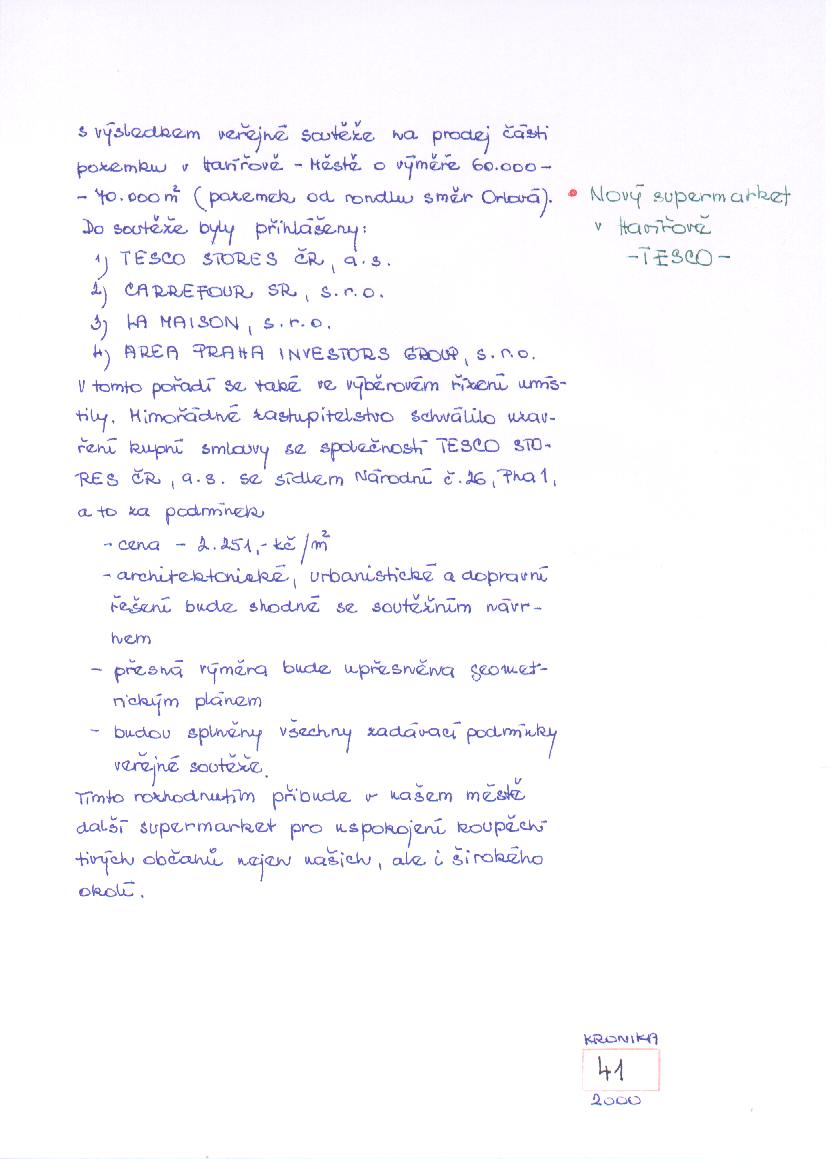 s výsledkem veřejné soutěže na prodej části
pozemku v Havířově - Městě o výměře 60.000 -
- 70.000 m² (pozemek od rondlu směr Orlová).
Do soutěže byly přihlášeny:
1) TESCO STORES ČR, a.s.
2) CARREFOUR SR, s.r.o.
3) LA MAISON, s.r.o.
4) AREA PRAHA INVESTORS GROUP, s.r.o.
V tomto pořadí se také ve výběrovém řízení umís-
tily. Mimořádné zastupitelstvo schválilo uzav-
ření kupní smlouvy se společností TESCO STO-
RES ČR, a.s. se sídlem Národní č. 26, Pha 1,
a to za podmínek
- cena - 2.251,- kč/m²
- architektonické, urbanistické a dopravní
řešení bude shodné se soutěžním návr-
hem
- přesná výměra bude upřesněna geomet-
rickým plánem
- budou splněny všechny zadávací podmínky
veřejné soutěže.
Tímto rozhodnutím přibude v našem městě
další supermarket pro uspokojení koupěch-
tivých občanů nejen našich, ale i širokého
okolí.
• Nový supermarket
v Havířově
- TESCO -
KRONIKA
41
2000